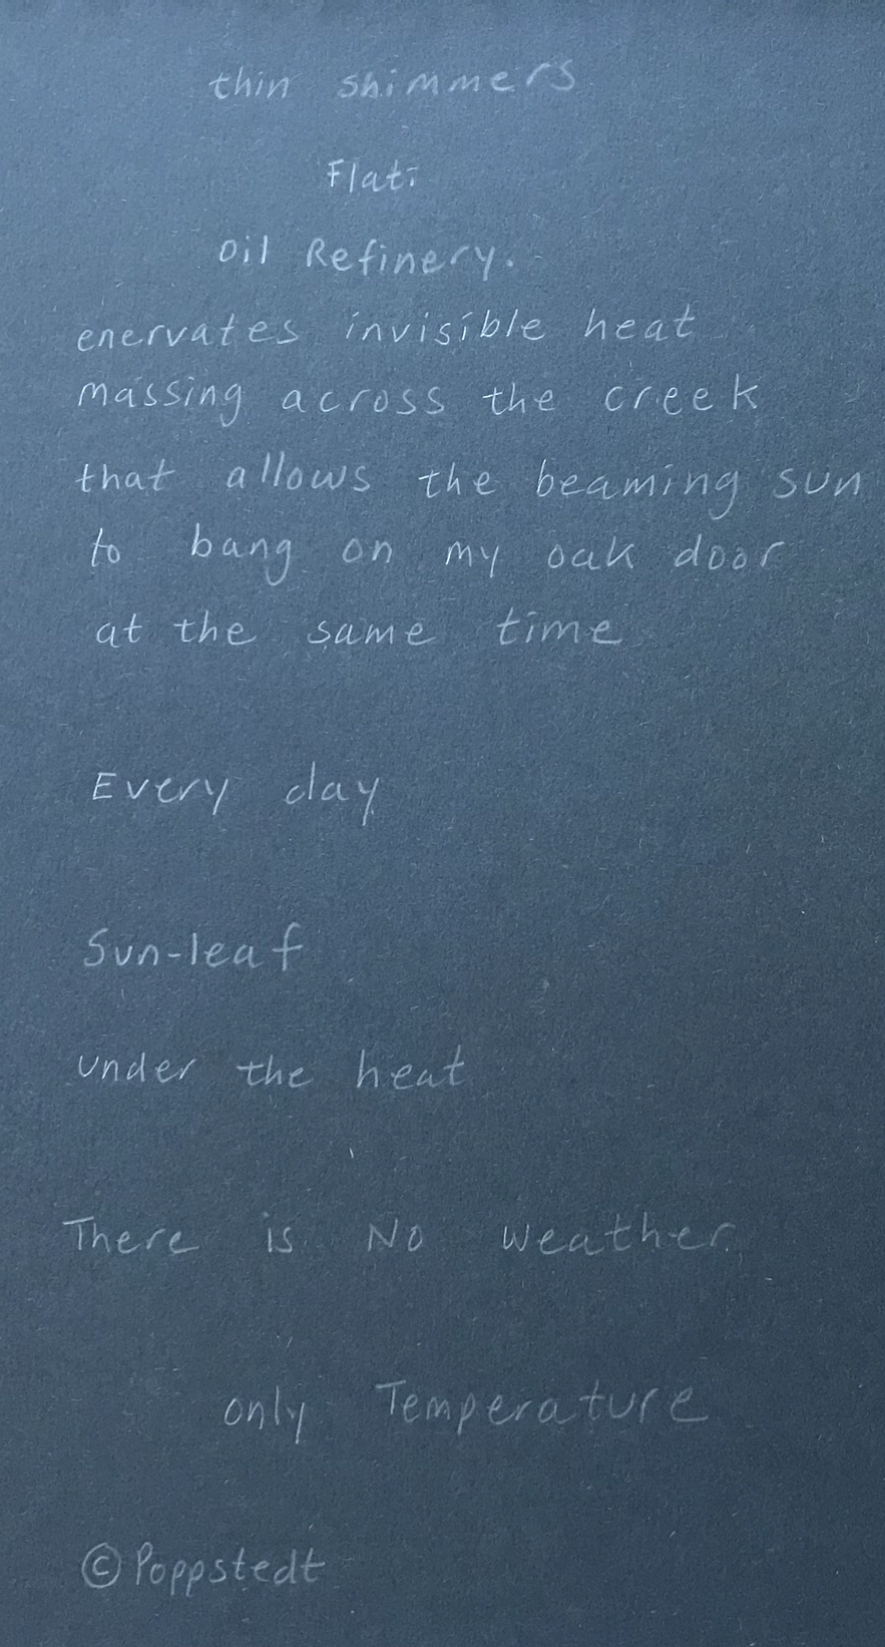 thin shimmers
Flat:
oil Refinery.
enervates invisible heat
massing across the creek
that allows the beaming sun
to bang on my oak door
at the same time
Every day
Sun-leaf
under the heat
There is No weather
only Temperature
© Poppstedt